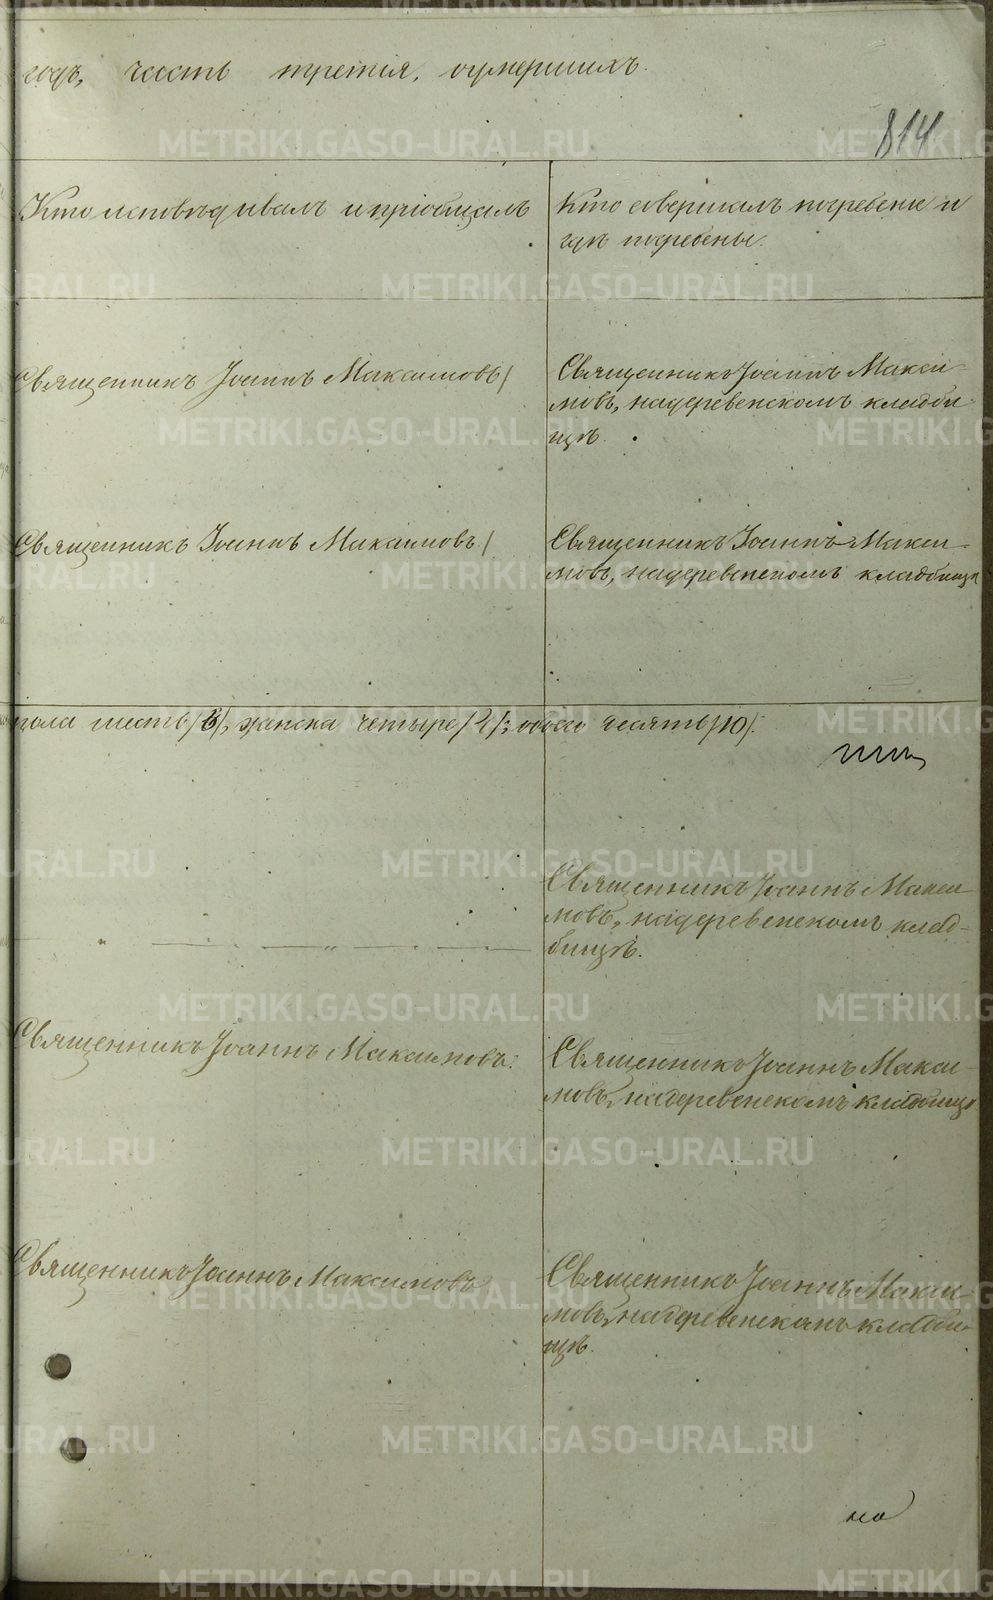 годъ, часть третiя, оумершихъ.
814
Кто исповѣдывалъ и прiобщалъ
Кто совершалъ погребенiе и
гдѣ погребены.
Священникъ Iоаннъ Максимовъ/
Священникъ Iоаннъ Макси-
мовъ, надеревенскомъ кладби-
щѣ.
Священникъ Iоаннъ Максимовъ/
Священникъ Iоаннъ Макси-
мовъ, надеревенскомъ кладбище
пола шесть/6/, женска четыре/4/; обоего десять/10/.
Священникъ Iоаннъ Макси
мовъ, надеревенскомъ клад-
бищѣ.
Священникъ Iоаннъ Максимовъ.
Священникъ Iоаннъ Макси
мовъ, надеревенскомъ кладбище
Священникъ Iоаннъ Максимовъ
Священникъ Iоаннъ Макси-
мовъ, надеревенскомъ кладби-
щѣ.
по
METRIKI.GASO-URAL.RU